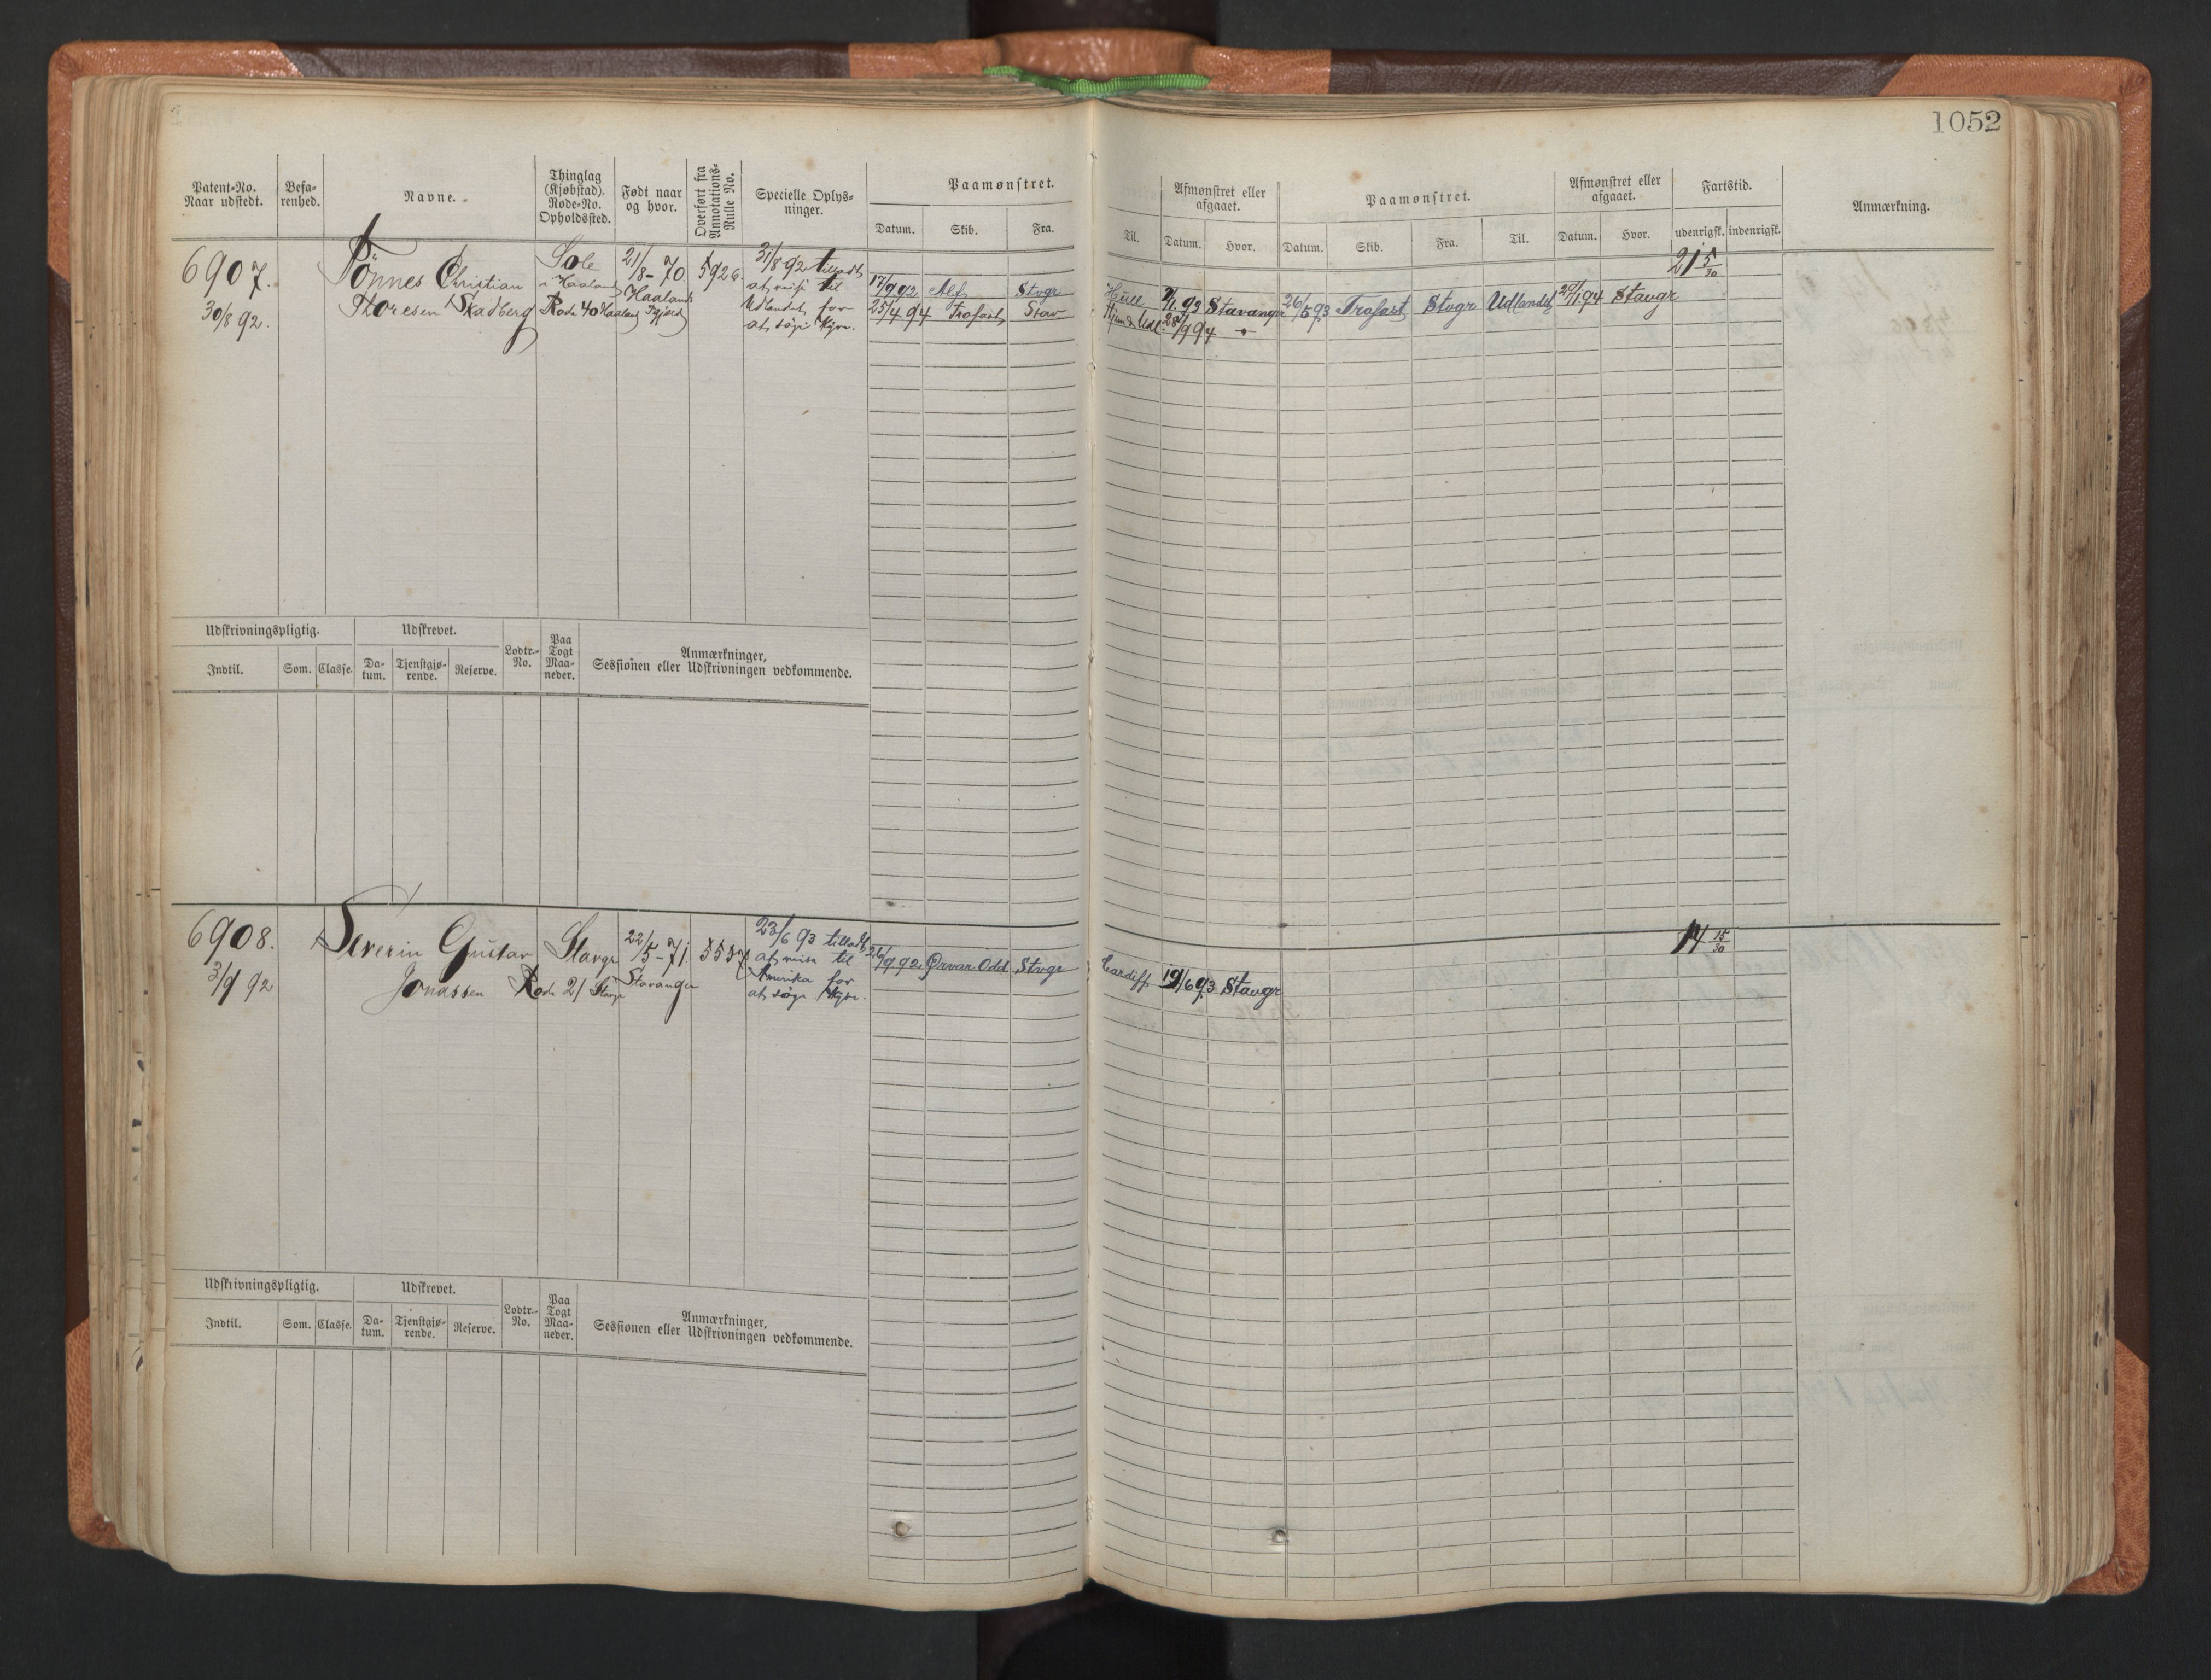 1052
Patent-No. Naar udstedt.
Befarenhed.
Navne.
Thinglag (Kjøbstad). Rode-No. Opholdssted.
Født naar og hvor.
Overført fra Annotations-Rulle No.
Specielle Oplysninger.
Paamønstret.
Datum. Skib. Fra.
Til.
Afmønstret eller afgaaet.
Datum. Hvor.
Paamønstret.
Datum. Skib. Fra. Til.
Afmønstret eller afgaaet.
Datum. Hvor.
Fartstid.
udenrigsk. indenrigsk.
Anmærkning.
6907.
30/8 92.
Tönnes Christian
Thoresen Skadberg
Sole
i Haaland
Rode 40 Haaland
21/8-70.
Haaland
5926.
31/8 92 tilladt
at reise til
Udlandet for
at söge Hyre.
17/9 92 Alf Stvgr
Hull 2/1 93 Stavanger
26/5 93 Trofast Stvgr Udlandet
27/1 94 Stavgr
25/4 94 Trofast Stav
28/9 94 "
21 5/30
Udskrivningspligtig.
Indtil. Som. Classe.
Udskrevet.
Datum. Tjenstgjørende. Reserve.
Lodtr.-No.
Paa Togt Maaneder.
Anmærkninger,
Sessionen eller Udskrivningen vedkommende.
6908.
3/9 92
Severin Gustav
Jonassen
Stavgr
Rode 21 Stavgr
22/5-71.
Stavanger
5537
23/6 93 tilladt
at reise til
Amerika for
at söge Hyre.
26/9 92 Ørvar Odd Stvgr
Cardiff 19/6 93 Stavgr
14 15/30
Udskrivningspligtig.
Indtil. Som. Classe.
Udskrevet.
Datum. Tjenstgjørende. Reserve.
Lodtr.-No.
Paa Togt Maaneder.
Anmærkninger,
Sessionen eller Udskrivningen vedkommende.